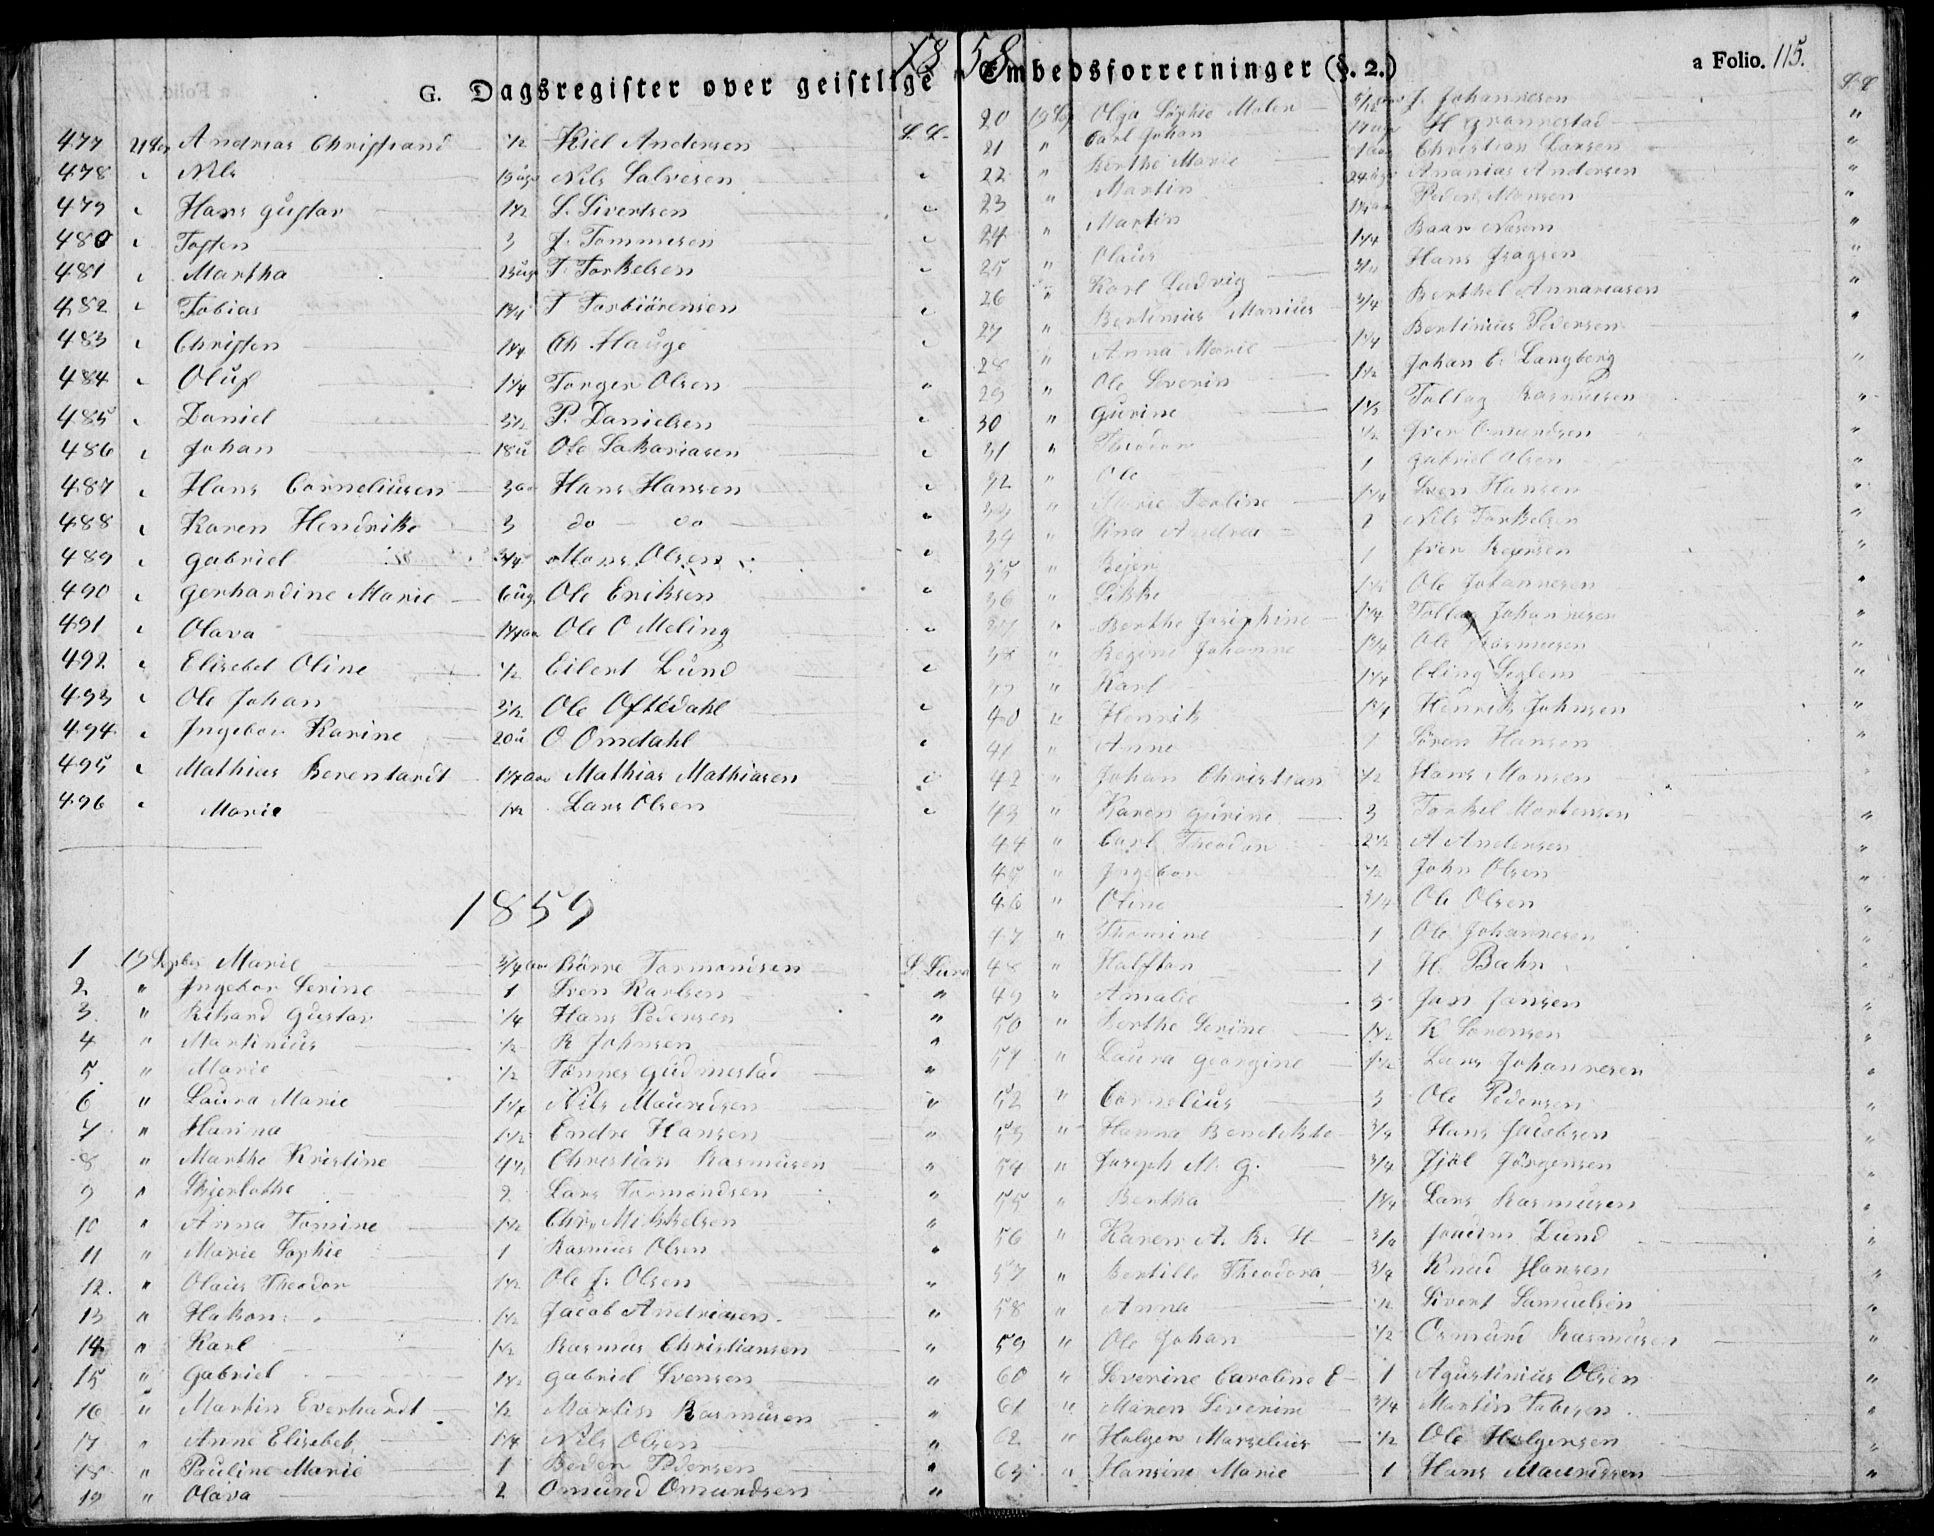 1858
G. Dagsregister over geistlige Embedsforretninger (§. 2.)
a Folio. 115.
477 21 Andreas Christiand ½ Kiel Andersen L. L.
478 " Nils Nils Salvesen "
479 " Hans Gustav 1½ S. Sivertsen "
480 " Tosten 3 J. Tommesen "
481 " Martha T. Torkelsen "
482 " Tobias 1¼ T Torbiörensen "
483 " Christen 1¼ Ch. Hauge "
484 " Oluf 1¼ Torger Olsen "
485 " Daniel 3½ P. Danielsen "
486 " Johan 18 u Ole Sakariasen "
487 " Hans Corneliusen 3 aar Hans Hansen "
488 " Karen Hendrike 3 do do "
489 " Gabriel ¾ Mons Olsen "
490 " Gerhardine Marie 6 ug Ole Eriksen "
491 " Olava Ole O Meling "
492 " Elisebet Oline ½ Eilert Lund "
493 " Ole Johan 3½ Ole Oftedahl "
494 " Ingebor Karine 20 u O Omdahl "
495 " Mathias Berentardt Mathias Mathiasen "
496 " Marie 1½ Lars Olsen "
1859
1 19 Septbr Marie ¾ aar Börre Tormondsen L Lund
2 " Ingebor Serine 1 Sven Karlsen "
3 " Rikard Gustav ¼ Hans Pedersen "
4 " Martinius ½ R Johnsen "
5 " Marie ½ Tönnes Gudmestad "
6 " Laura Marie 1¼ Nils Mauridsen "
7 " Hanna 1½ Endre Hansen "
8 " Marthe Kristine 4½ Christian Rasmusen "
9 " 2 Lars Tormondsen "
10 " Anna Tomine 1½ Chr. Mikkelsen "
11 " Marie Sophie 1 Rasmus Olsen "
12 " Olaus Theodor 1½ Ole J. Olsen "
13 " Hakon 1½ Jacob Andriasen "
14 " Karl 1½ Rasmus Christiansen "
15 " Gabriel 1½ Gabriel Svensen "
16 " Martin Everhardt ½ Martin Rasmusen "
17 " Anne Elisebet 1¼ Nils Olsen "
18 " Pauline Marie 1 Peder Pedersen "
19 " Olava 2 Omund Omundsen "
L L
20 19 Sep Olga Sophie Malen J. Johannesen "
21 " Carl Johan H Grannestad "
22 " Berthe Marie Christian Larsen "
23 " Martin Ananias Andersen "
24 " Martin Peder Monsen "
25 " Olaus 1¼ "
26 " Karl Ludvig Hans "
27 " Bertinius Manius ¾ Berthel "
28 " Anna Marie 1¼ Bertinius Pedersen "
29 " Ole Severin 1½ Johan E. Langberg "
30 " Gurine 1½ Tollag Rasmusen "
31 " Theodor ½ Iver Omundsen "
32 " Ole 1 Gabriel Olsen "
33 " Marie 1¼ Sven Hansen "
34 " Sina Andrea 2 Nils Torkelsen "
35 " 1 Iver "
36 " Ole Johannesen "
37 " Berthe Josephine 1¼ Tollag Johannesen "
38 " Regine Johanne 1¼ Ole Rasmusen "
39 " Karl 1¼ Eling "
40 " Henrik 1¼ Henrik Johnsen "
41 " Anne 1 Sören Hansen "
42 " Johan Christian ½ Hans Monsen "
43 " Karen Gurine 3 Torkel Mortensen "
44 " Carl Theodor 2½ A Andersen "
45 " Ingebor ½ John Olsen "
46 " Oline ¾ Ole Olsen "
47 " Thomine 1 Ole Johannesen "
48 " Halftan 1 H. Bahn "
49 " Amalie 5 Jan Jansen "
50 " Berthe Serine 1½ K Sörensen "
51 " Laura Georgine 1½ Lars Johannesen "
52 " Cornelius 3 Ole Pedersen "
53 " Hanna Bendikte ¾ Hans Jacobsen "
54 " Joseph M. G. ¾ Jörgensen "
55 " Bertha 1¼ Lars Rasmusen "
56 " Karen A. K. H ¾ Joakim Lund "
57 " Bertille Theodora ¾ Knud Hansen "
58 " Anna ½ Sivert Samuelsen "
59 " Ole Johan ½ Osmund Rasmusen "
60 " Severine Caroline E 1 Agustinius Olsen "
61 " Maren Siverine ¾ Martin Tobisen "
62 " Holger Marselius ½ Ole Holgersen "
63 " Hansine Marie 1 Hans Mauridsen "